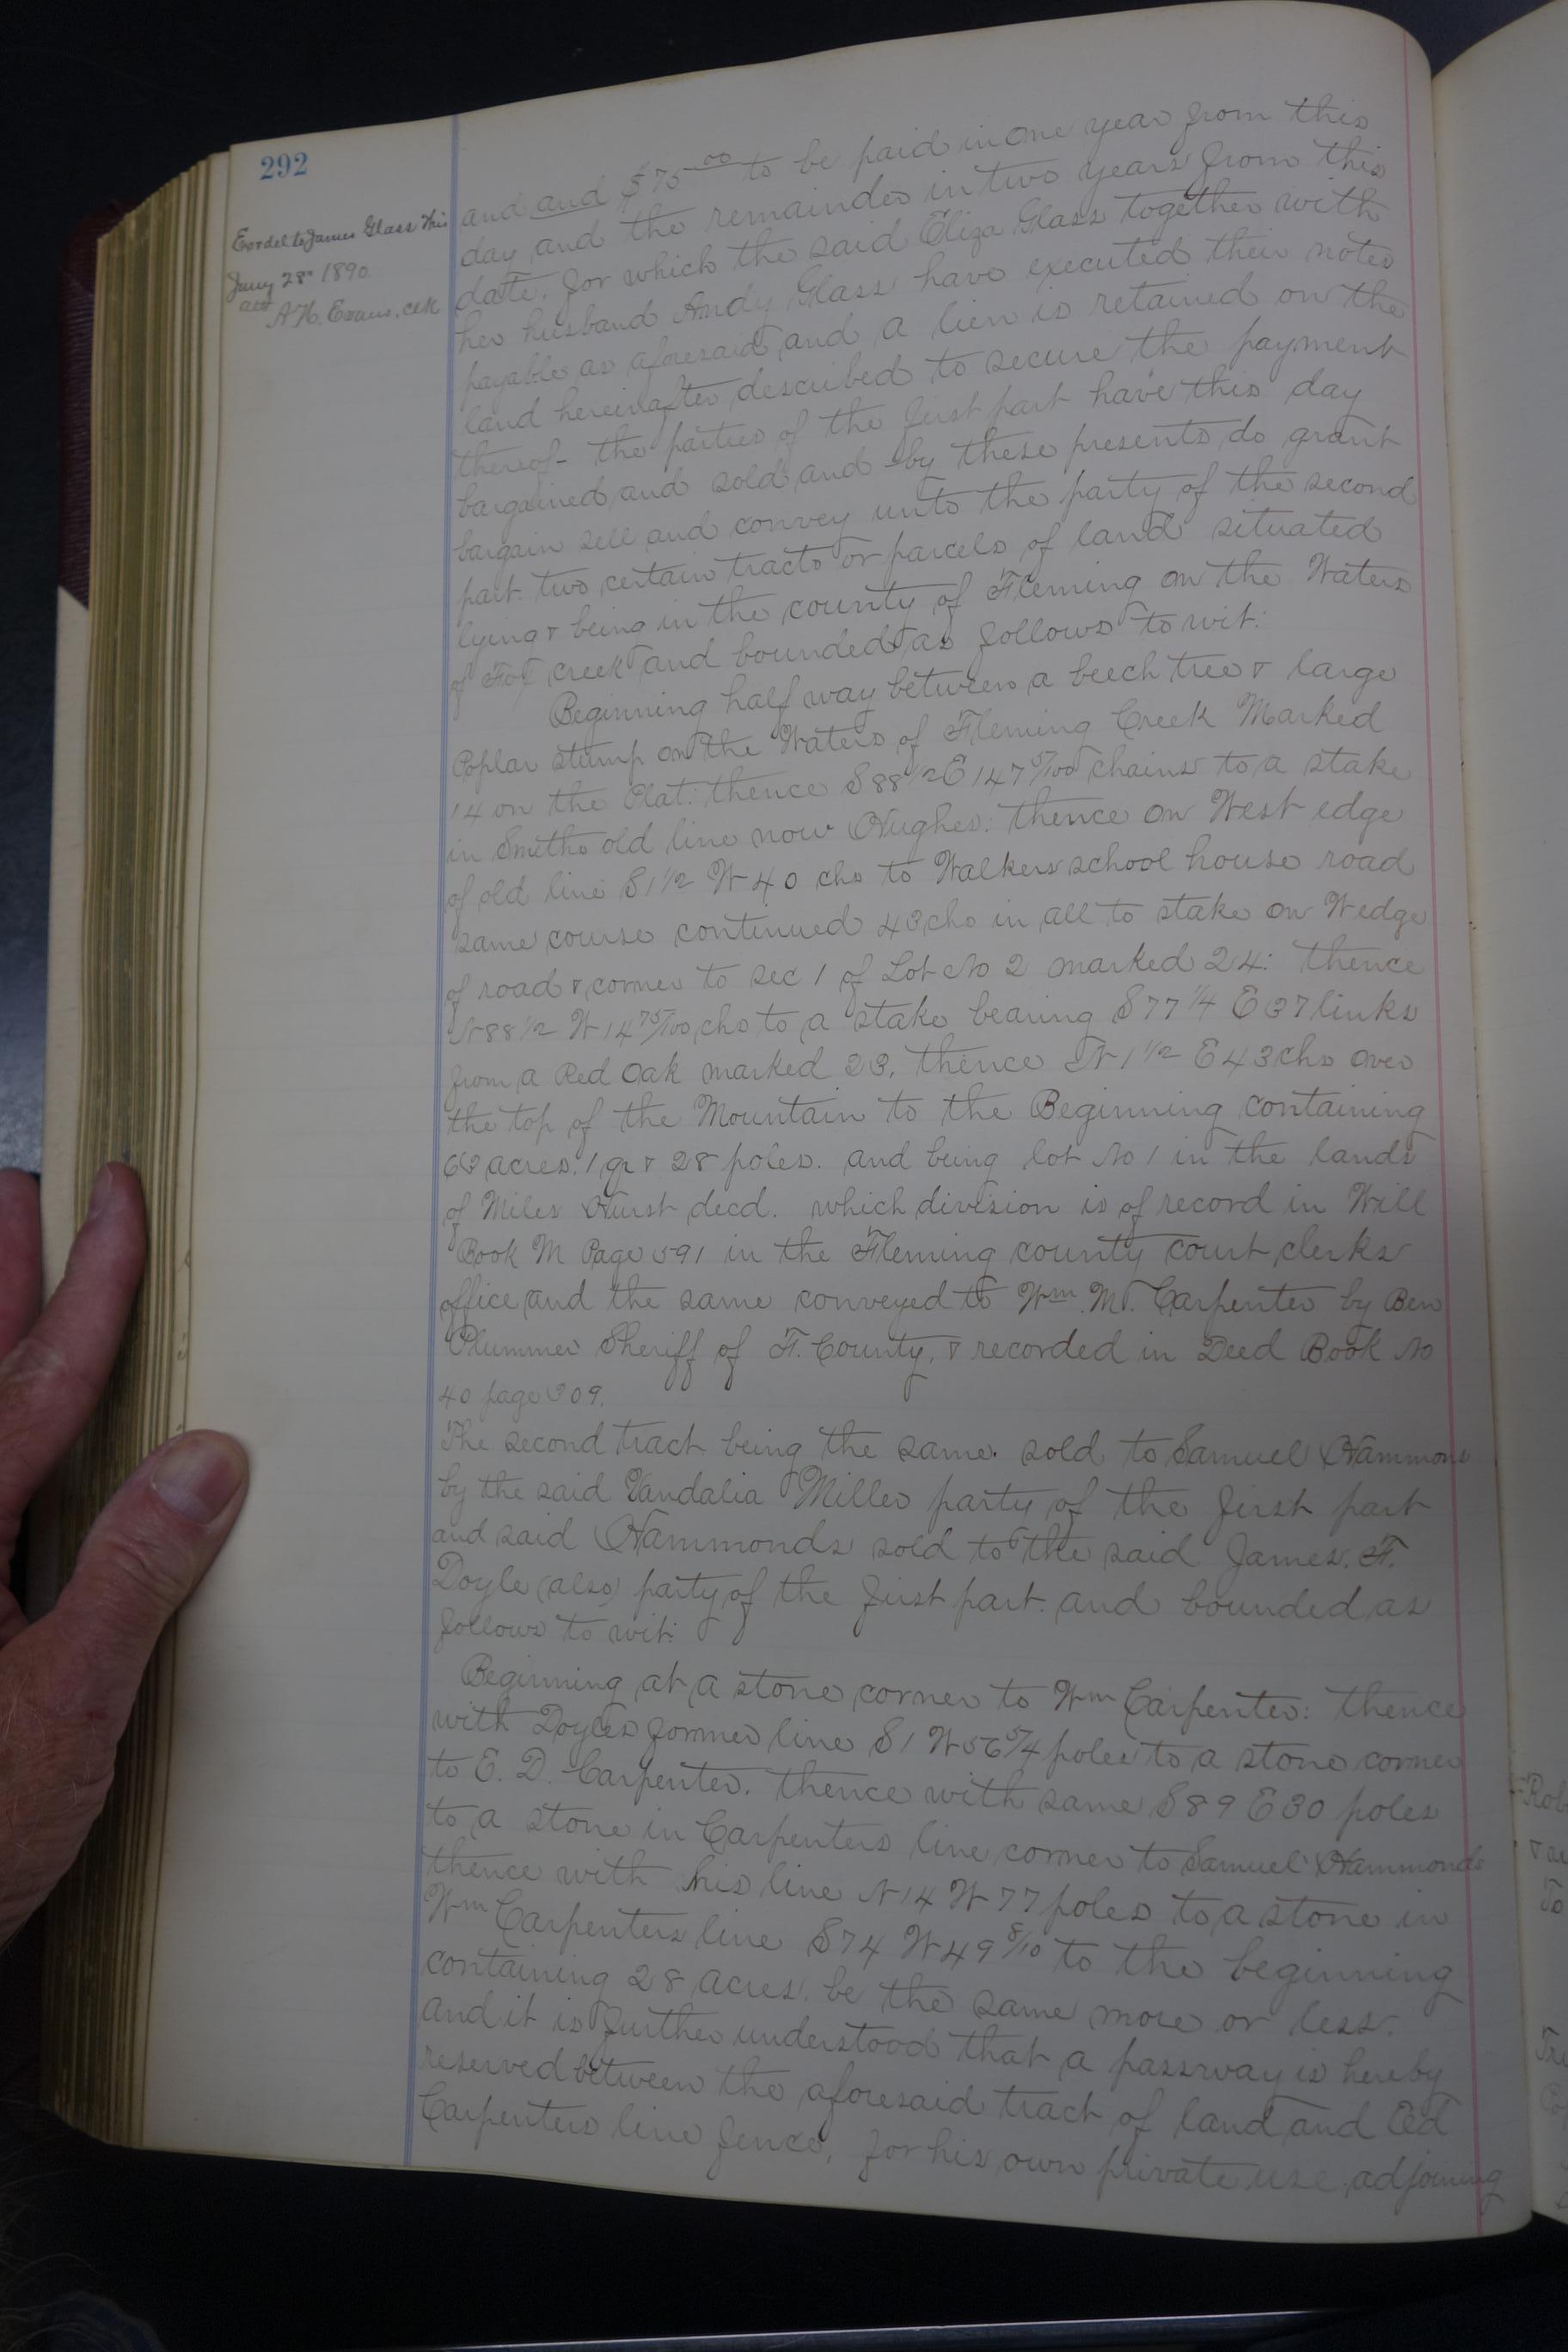 292
Exrdel to James Glass this
Jany 28th 1890
att A. H. Evans, clk
and and $75.00 to be paid in one year from this
day and the remainder in two years from this
date. for which the said Eliza Glass together with
her husband Andy Glass have executed their notes
payable as aforesaid and a lien is retained on the
land hereinafter described to secure the payment
thereof - the parties of the first part have this day
bargained and sold and by these presents do grant
bargain sell and convey unto the party of the second
part. two certain tracts or parcels of land situated
lying & being in the county of Fleming on the Waters
of Fox creek and bounded as follows to wit:
Beginning half way between a beech tree & large
Poplar stump on the Waters of Fleming Creek Marked
14 on the Plat. thence S 88 1/2 E 147 5/100 chains to a stake
in Smiths old line now Hughes: thence on West edge
of old line S 1 1/2 W 40 chs to Walkers school house road
same course continued 43 chs in all to stake on W edge
of road & corner to sec 1 of Lot No 2 marked 24: thence
N 88 1/2 W 14 75/100 chs to a stake bearing S 77 1/4 E 37 links
from a Red Oak marked 23, thence N 1 1/2 E 43 chs over
the top of the Mountain to the Beginning containing
63 acres. 1 qr & 28 poles. and being lot No 1 in the lands
of Miles Hurst decd. which division is of record in Will
Book M Page 591 in the Fleming county court clerks
office and the same conveyed to Wm. M. Carpenter by Ben
Plummer Sheriff of F. County, & recorded in Deed Book No
40 page 309.
The second tract being the same. sold to Samuel Hammons
by the said Vandalia Miller party of the first part
and said Hammonds sold to the said James. F.
Doyle (also) party of the first part. and bounded as
follows to wit:
Beginning at a stone corner to Wm Carpenter: thence
with Doyles former line S 1 W 56 5/4 poles to a stone corner
to E. D. Carpenter. thence with same S 89 E 30 poles
to a stone in Carpenters line corner to Samuel Hammonds
thence with his line N 14 W 77 poles to a stone in
Wm Carpenters line S 74 W 49 8/10 to the beginning
containing 28 acres. be the same more or less.
and it is further understood that a passway is hereby
reserved between the aforesaid tract of land and Ed
Carpenters line fence, for his own private use adjoining